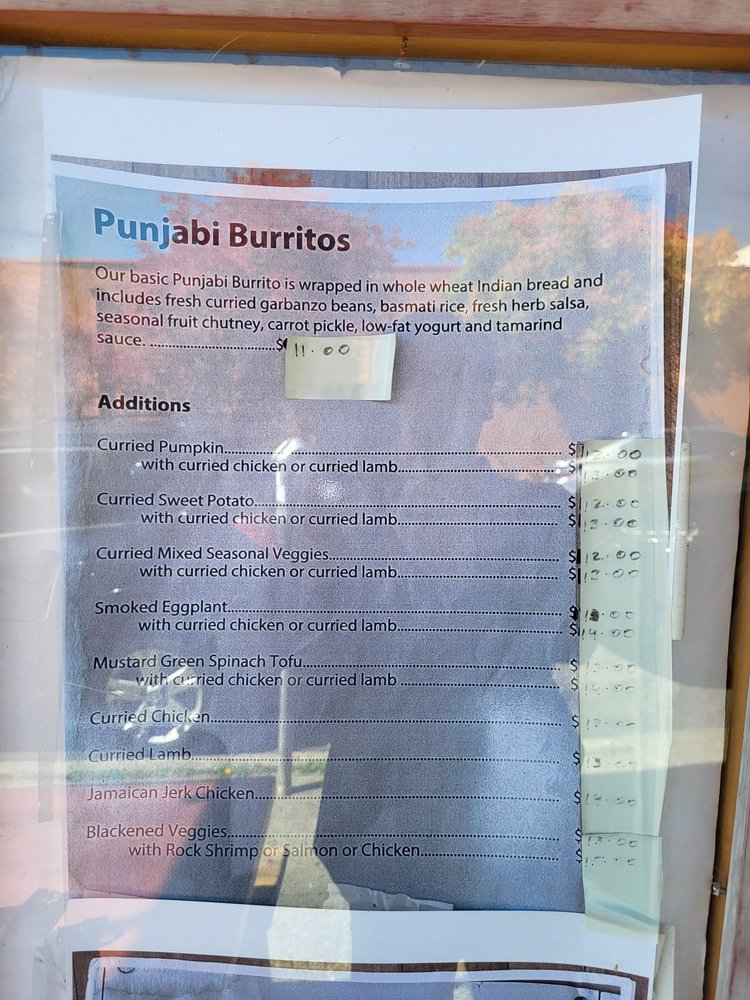 Punjabi Burritos
Our basic Punjabi Burrito is wrapped in whole wheat Indian bread and
includes fresh curried garbanzo beans, basmati rice, fresh herb salsa,
seasonal fruit chutney, carrot pickle, low-fat yogurt and tamarind
sauce. ..............................$ 11.00
Additions
Curried Pumpkin.......................................................................$
with curried chicken or curried lamb...................................$
Curried Sweet Potato.................................................................$ 12.00
with curried chicken or curried lamb...................................$ 13.00
Curried Mixed Seasonal Veggies..................................................$ 12.00
with curried chicken or curried lamb...................................$ 13.00
Smoked Eggplant......................................................................$
with curried chicken or curried lamb...................................$ 14.00
Mustard Green Spinach Tofu.......................................................$ 13.00
with curried chicken or curried lamb ..................................$ 14.00
Curried Chicken........................................................................$
Curried Lamb...........................................................................$
Jamaican Jerk Chicken...............................................................$
Blackened Veggies.....................................................................$ 13.00
with Rock Shrimp or Salmon or Chicken..............................$